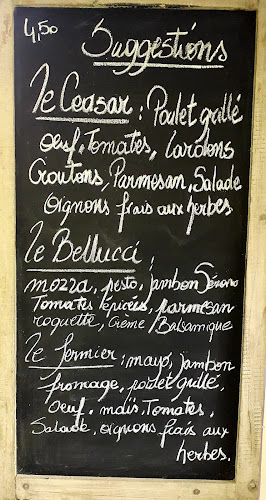 4,50
Suggestions
Le Ceasar : Poulet grillé
oeuf, Tomates, Lardons
Croutons, Parmesan, Salade
oignons frais aux herbes
Le Bellucci :
mozza, pesto, jambon Serano
Tomates épicées, parmesan
roquette, Crème Balsamique
Le fermier : mayo, jambon
fromage, poulet grillé,
oeuf, maïs, Tomates,
Salade, oignons frais aux
herbes.